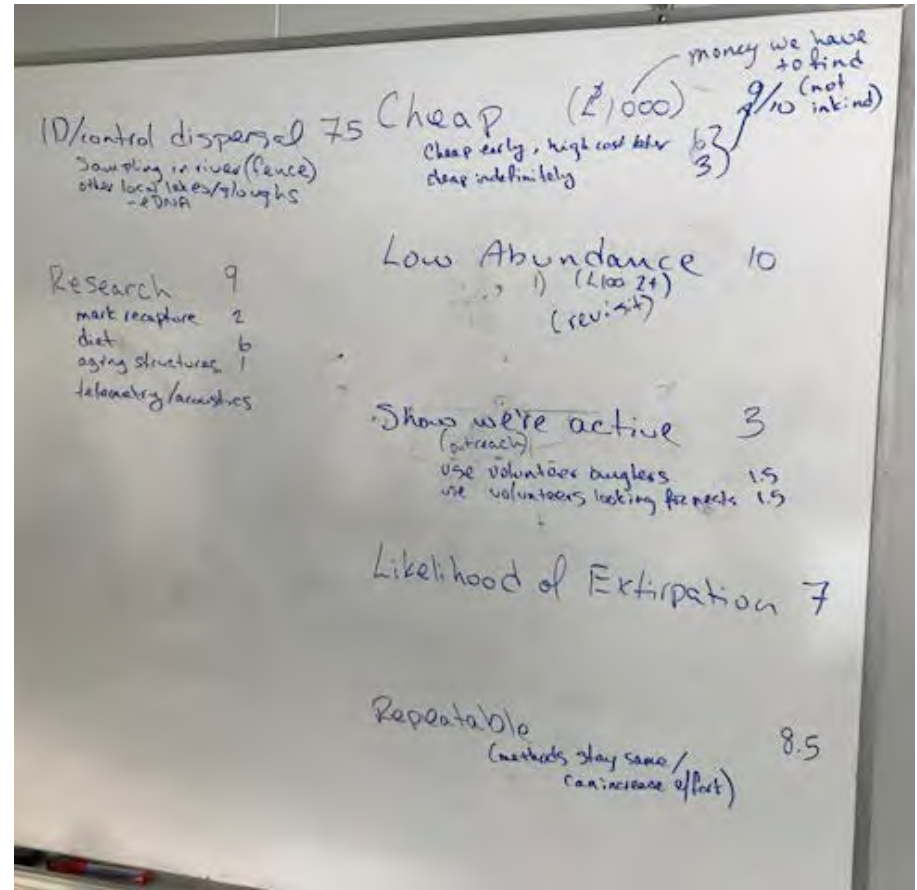 ID/control dispersal 75
Sampling in river (fence)
other local lakes/sloughs
- eDNA
Research 9
mark recapture 2
diet 6
aging structures 1
telemetry/acoustics
Cheap (£1,000)
money we have
to find
(not
inkind)
9/10
Cheap early, high cost later 6?
cheap indefinitely 3
Low Abundance 10
1) (L100 2+)
(revisit)
Show we're active 3
(outreach)
use volunteer anglers 1.5
use volunteers looking for nests 1.5
Likelihood of Extirpation 7
Repeatable 8.5
(methods stay same/
can increase effort)